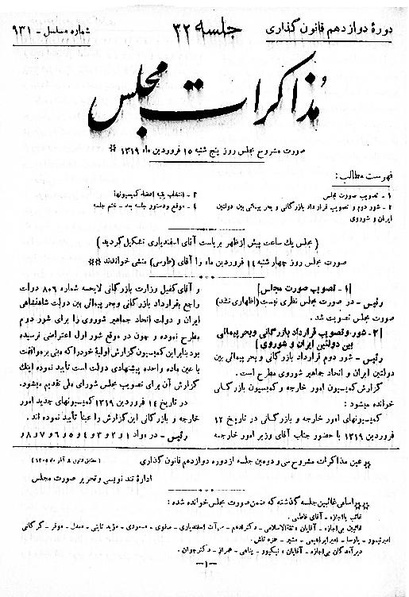 دورهٔ دوازدهم قانون گذاری
جلسه ۳۲
شماره مسلسل - ۹۳۱
مذاکرات مجلس
صورت مشروح مجلس روز پنج شنبه ۱۵ فروردین ماه ۱۳۱۹
فهرست مطالب:
۱ - تصویب صورت مجلس
۲ - شور دوم و تصویب قرارداد بازرگانی و بحر پیمائی بین دولتین
ایران و شوروی
۳ - انتخاب بقیه اعضاء کمیسیونها
۴ - موقع و دستور جلسه بعد - ختم جلسه
(مجلس یک ساعت پیش از ظهر بریاست آقای اسفندیاری تشکیل گردید)
صورت مجلس روز چهارشنبه ۱۴ فروردین ماه را آقای (طوسی) منشی خواندند
[۱ - تصویب صورت مجلس]
رئیس - در صورت مجلس نظری نیست (اظهاری نشد)
صورت مجلس تصویب شد.
[۲ - شور و تصویب قرارداد بازرگانی و بحر پیمائی
بین دولتین ایران و شوروی]
رئیس - شور دوم قرارداد بازرگانی و بحر پیمائی بین
دولتین ایران و اتحاد جماهیر شوروی مطرح است.
گزارش کمیسیون امور خارجه و کمیسیون بازرگانی
خوانده میشود:
کمیسیونهای امور خارجه و بازرگانی در تاریخ ۱۲
فروردین ۱۳۱۹ با حضور جناب آقای وزیر امور خارجه
و آقای کفیل وزارت بازرگانی لایحه شماره ۸۰۹ دولت
راجع بقرارداد بازرگانی و بحر پیمائی بین دولت شاهنشاهی
ایران و دولت اتحاد جماهیر شوروی را برای شور دوم
مطرح نموده و چون در موقع شور اول اعتراضی نرسیده
بود بنابر این کمیسیون گزارش اولیهٔ خود را که مبنی بر موافقت
با عین ماده واحده پیشنهادی دولت است تأیید نموده اینک
گزارش آن برای تصویب مجلس شورای ملی تقدیم میشود.
در تاریخ ۱۴ فروردین ۱۳۱۹ کمیسیونهای جدید امور
خارجه و بازرگانی این گزارش را عیناً تأیید نموده اند.
رئیس - در مواد ۱ و ۲ و ۳ و ۴ و ۵ و ۶ و ۷ و ۸ و ۹
عین مذاکرات مشروح سی و دومین جلسه از دوره دوازدهم قانون گذاری
اداره تند نویسی و تحریر صورت مجلس
اسامی غائبین جلسه گذشته که ضمن صورت مجلس خوانده شده:
غائب با اجازه - آقای فاطمی.
غائبین بی اجازه - آقایان
دیرآمدگان بی اجازه - آقایان
- ۱ -